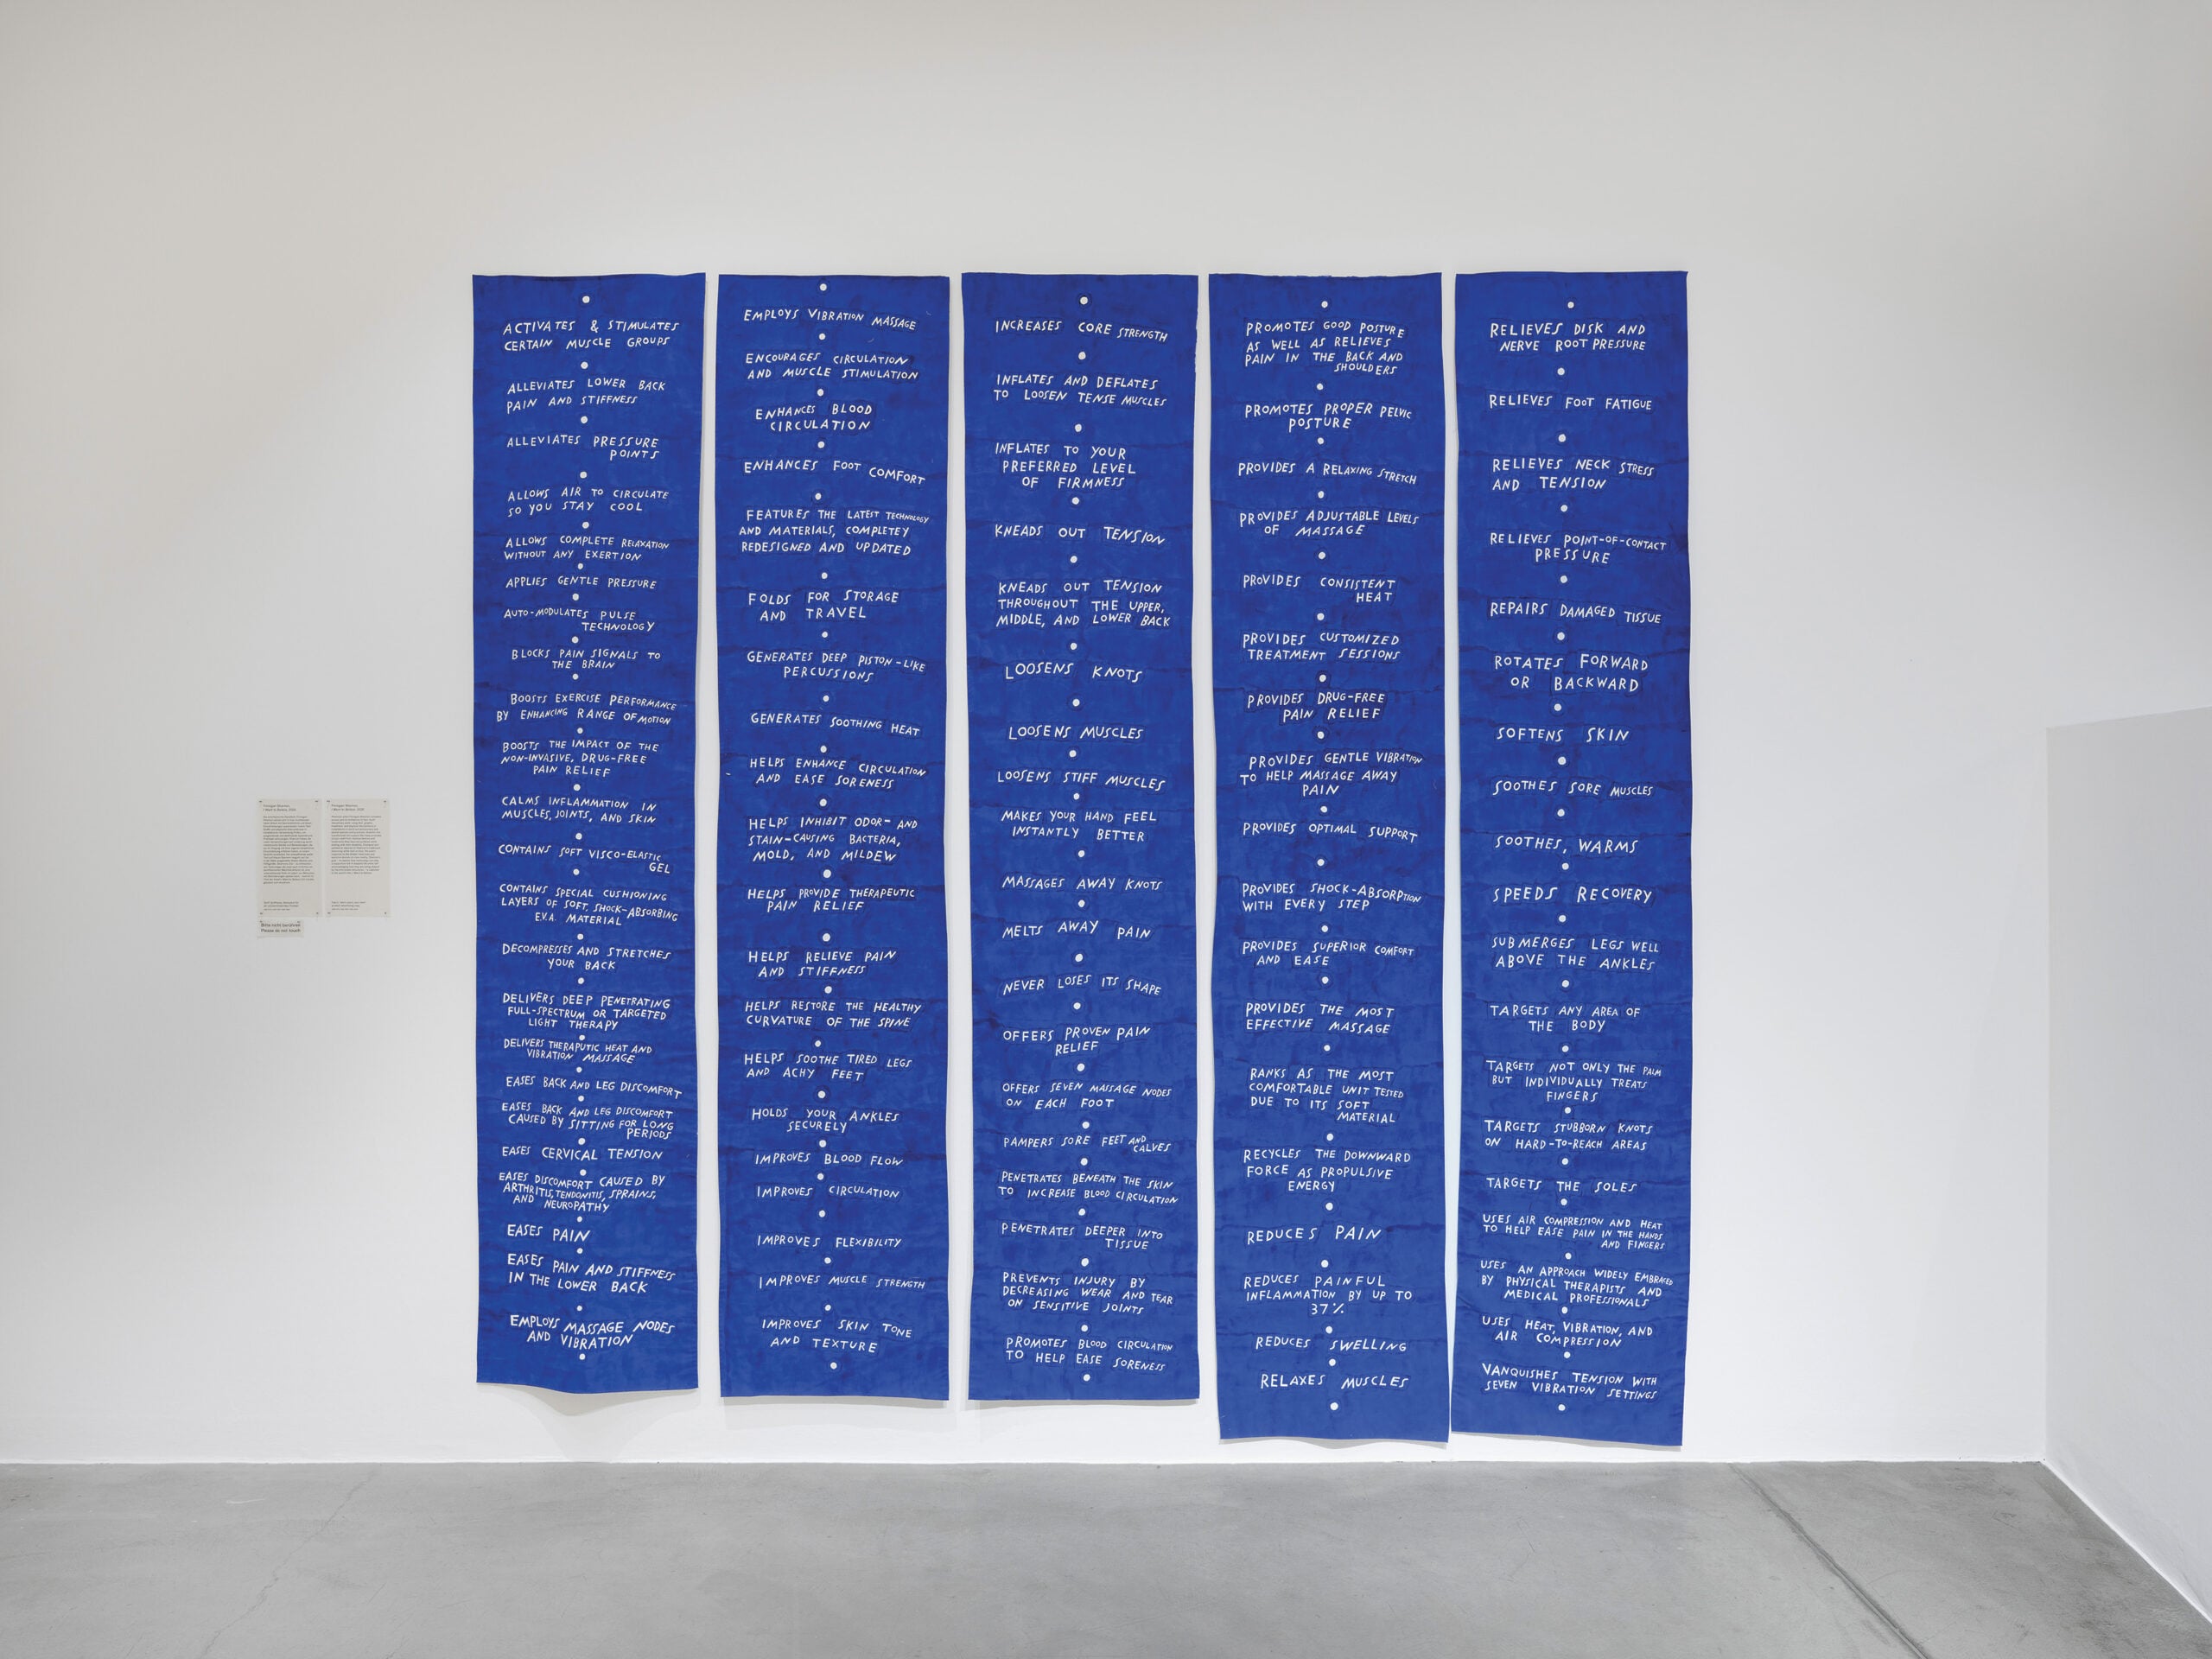 ACTIVATES & STIMULATES
CERTAIN MUSCLE GROUPS
ALLEVIATES LOWER BACK
PAIN AND STIFFNESS
ALLEVIATES PRESSURE
POINTS
ALLOWS AIR TO CIRCULATE
SO YOU STAY COOL
ALLOWS COMPLETE RELAXATION
WITHOUT ANY EXERTION
APPLIES GENTLE PRESSURE
AUTO-MODULATES PULSE
TECHNOLOGY
BLOCKS PAIN SIGNALS TO
THE BRAIN
BOOSTS EXERCISE PERFORMANCE
BY ENHANCING RANGE OF MOTION
BOOSTS THE IMPACT OF THE
NON-INVASIVE, DRUG-FREE
PAIN RELIEF
CALMS INFLAMMATION IN
MUSCLES, JOINTS, AND SKIN
CONTAINS SOFT VISCO-ELASTIC
GEL
CONTAINS SPECIAL CUSHIONING
LAYERS OF SOFT, SHOCK-ABSORBING
E.V.A. MATERIAL
DECOMPRESSES AND STRETCHES
YOUR BACK
DELIVERS DEEP PENETRATING
FULL-SPECTRUM OR TARGETED
LIGHT THERAPY
DELIVERS THERAPUTIC HEAT AND
VIBRATION MASSAGE
EASES BACK AND LEG DISCOMFORT
EASES BACK AND LEG DISCOMFORT
CAUSED BY SITTING FOR LONG
PERIODS
EASES CERVICAL TENSION
EASES DISCOMFORT CAUSED BY
ARTHRITIS, TENDONITIS, SPRAINS,
AND NEUROPATHY
EASES PAIN
EASES PAIN AND STIFFNESS
IN THE LOWER BACK
EMPLOYS MASSAGE NODES
AND VIBRATION
EMPLOYS VIBRATION MASSAGE
ENCOURAGES CIRCULATION
AND MUSCLE STIMULATION
ENHANCES BLOOD
CIRCULATION
ENHANCES FOOT COMFORT
FEATURES THE LATEST TECHNOLOGY
AND MATERIALS, COMPLETEY
REDESIGNED AND UPDATED
FOLDS FOR STORAGE
AND TRAVEL
GENERATES DEEP PISTON-LIKE
PERCUSSIONS
GENERATES SOOTHING HEAT
HELPS ENHANCE CIRCULATION
AND EASE SORENESS
HELPS INHIBIT ODOR- AND
STAIN-CAUSING BACTERIA,
MOLD, AND MILDEW
HELPS PROVIDE THERAPEUTIC
PAIN RELIEF
HELPS RELIEVE PAIN
AND STIFFNESS
HELPS RESTORE THE HEALTHY
CURVATURE OF THE SPINE
HELPS SOOTHE TIRED LEGS
AND ACHY FEET
HOLDS YOUR ANKLES
SECURELY
IMPROVES BLOOD FLOW
IMPROVES CIRCULATION
IMPROVES FLEXIBILITY
IMPROVES MUSCLE STRENGTH
IMPROVES SKIN TONE
AND TEXTURE
INCREASES CORE STRENGTH
INFLATES AND DEFLATES
TO LOOSEN TENSE MUSCLES
INFLATES TO YOUR
PREFERRED LEVEL
OF FIRMNESS
KNEADS OUT TENSION
KNEADS OUT TENSION
THROUGHOUT THE UPPER,
MIDDLE, AND LOWER BACK
LOOSENS KNOTS
LOOSENS MUSCLES
LOOSENS STIFF MUSCLES
MAKES YOUR HAND FEEL
INSTANTLY BETTER
MASSAGES AWAY KNOTS
MELTS AWAY PAIN
NEVER LOSES ITS SHAPE
OFFERS PROVEN PAIN
RELIEF
OFFERS SEVEN MASSAGE NODES
ON EACH FOOT
PAMPERS SORE FEET AND
CALVES
PENETRATES BENEATH THE SKIN
TO INCREASE BLOOD CIRCULATION
PENETRATES DEEPER INTO
TISSUE
PREVENTS INJURY BY
DECREASING WEAR AND TEAR
ON SENSITIVE JOINTS
PROMOTES BLOOD CIRCULATION
TO HELP EASE SORENESS
PROMOTES GOOD POSTURE
AS WELL AS RELIEVES
PAIN IN THE BACK AND
SHOULDERS
PROMOTES PROPER PELVIC
POSTURE
PROVIDES A RELAXING STRETCH
PROVIDES ADJUSTABLE LEVELS
OF MASSAGE
PROVIDES CONSISTENT
HEAT
PROVIDES CUSTOMIZED
TREATMENT SESSIONS
PROVIDES DRUG-FREE
PAIN RELIEF
PROVIDES GENTLE VIBRATION
TO HELP MASSAGE AWAY
PAIN
PROVIDES OPTIMAL SUPPORT
PROVIDES SHOCK-ABSORPTION
WITH EVERY STEP
PROVIDES SUPERIOR COMFORT
AND EASE
PROVIDES THE MOST
EFFECTIVE MASSAGE
RANKS AS THE MOST
COMFORTABLE UNIT TESTED
DUE TO ITS SOFT
MATERIAL
RECYCLES THE DOWNWARD
FORCE AS PROPULSIVE
ENERGY
REDUCES PAIN
REDUCES PAINFUL
INFLAMMATION BY UP TO
37%
REDUCES SWELLING
RELAXES MUSCLES
RELIEVES DISK AND
NERVE ROOT PRESSURE
RELIEVES FOOT FATIGUE
RELIEVES NECK STRESS
AND TENSION
RELIEVES POINT-OF-CONTACT
PRESSURE
REPAIRS DAMAGED TISSUE
ROTATES FORWARD
OR BACKWARD
SOFTENS SKIN
SOOTHES SORE MUSCLES
SOOTHES, WARMS
SPEEDS RECOVERY
SUBMERGES LEGS WELL
ABOVE THE ANKLES
TARGETS ANY AREA OF
THE BODY
TARGETS NOT ONLY THE PALM
BUT INDIVIDUALLY TREATS
FINGERS
TARGETS STUBBORN KNOTS
ON HARD-TO-REACH AREAS
TARGETS THE SOLES
USES AIR COMPRESSION AND HEAT
TO HELP EASE PAIN IN THE HANDS
AND FINGERS
USES AN APPROACH WIDELY EMBRACED
BY PHYSICAL THERAPISTS AND
MEDICAL PROFESSIONALS
USES HEAT, VIBRATION, AND
AIR COMPRESSION
VANQUISHES TENSION WITH
SEVEN VIBRATION SETTINGS
Bitte nicht berühren
Please do not touch